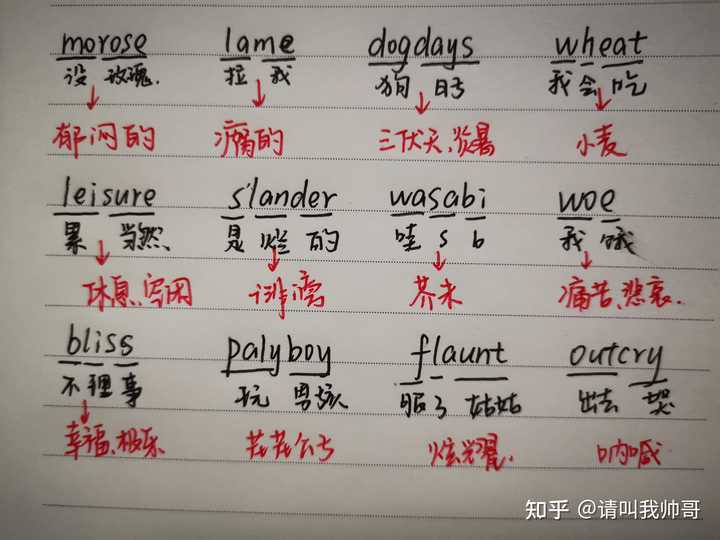 morose lame dogdays wheat
没 玫瑰. 拉 我 狗 日子 我 会 吃
郁闷的 瘸的 三伏天,炎暑 小麦
leisure slander wasabi woe
累 当然 是 烂 的 哇 s b 我 饿
休息,空闲 诽谤 芥末 痛苦,悲哀.
bliss palyboy flaunt outcry
不 理 事 玩 男孩 服了 姑姑 出去 哭
幸福,极乐 花花公子 炫耀. 呐喊
知乎 @请叫我帅哥